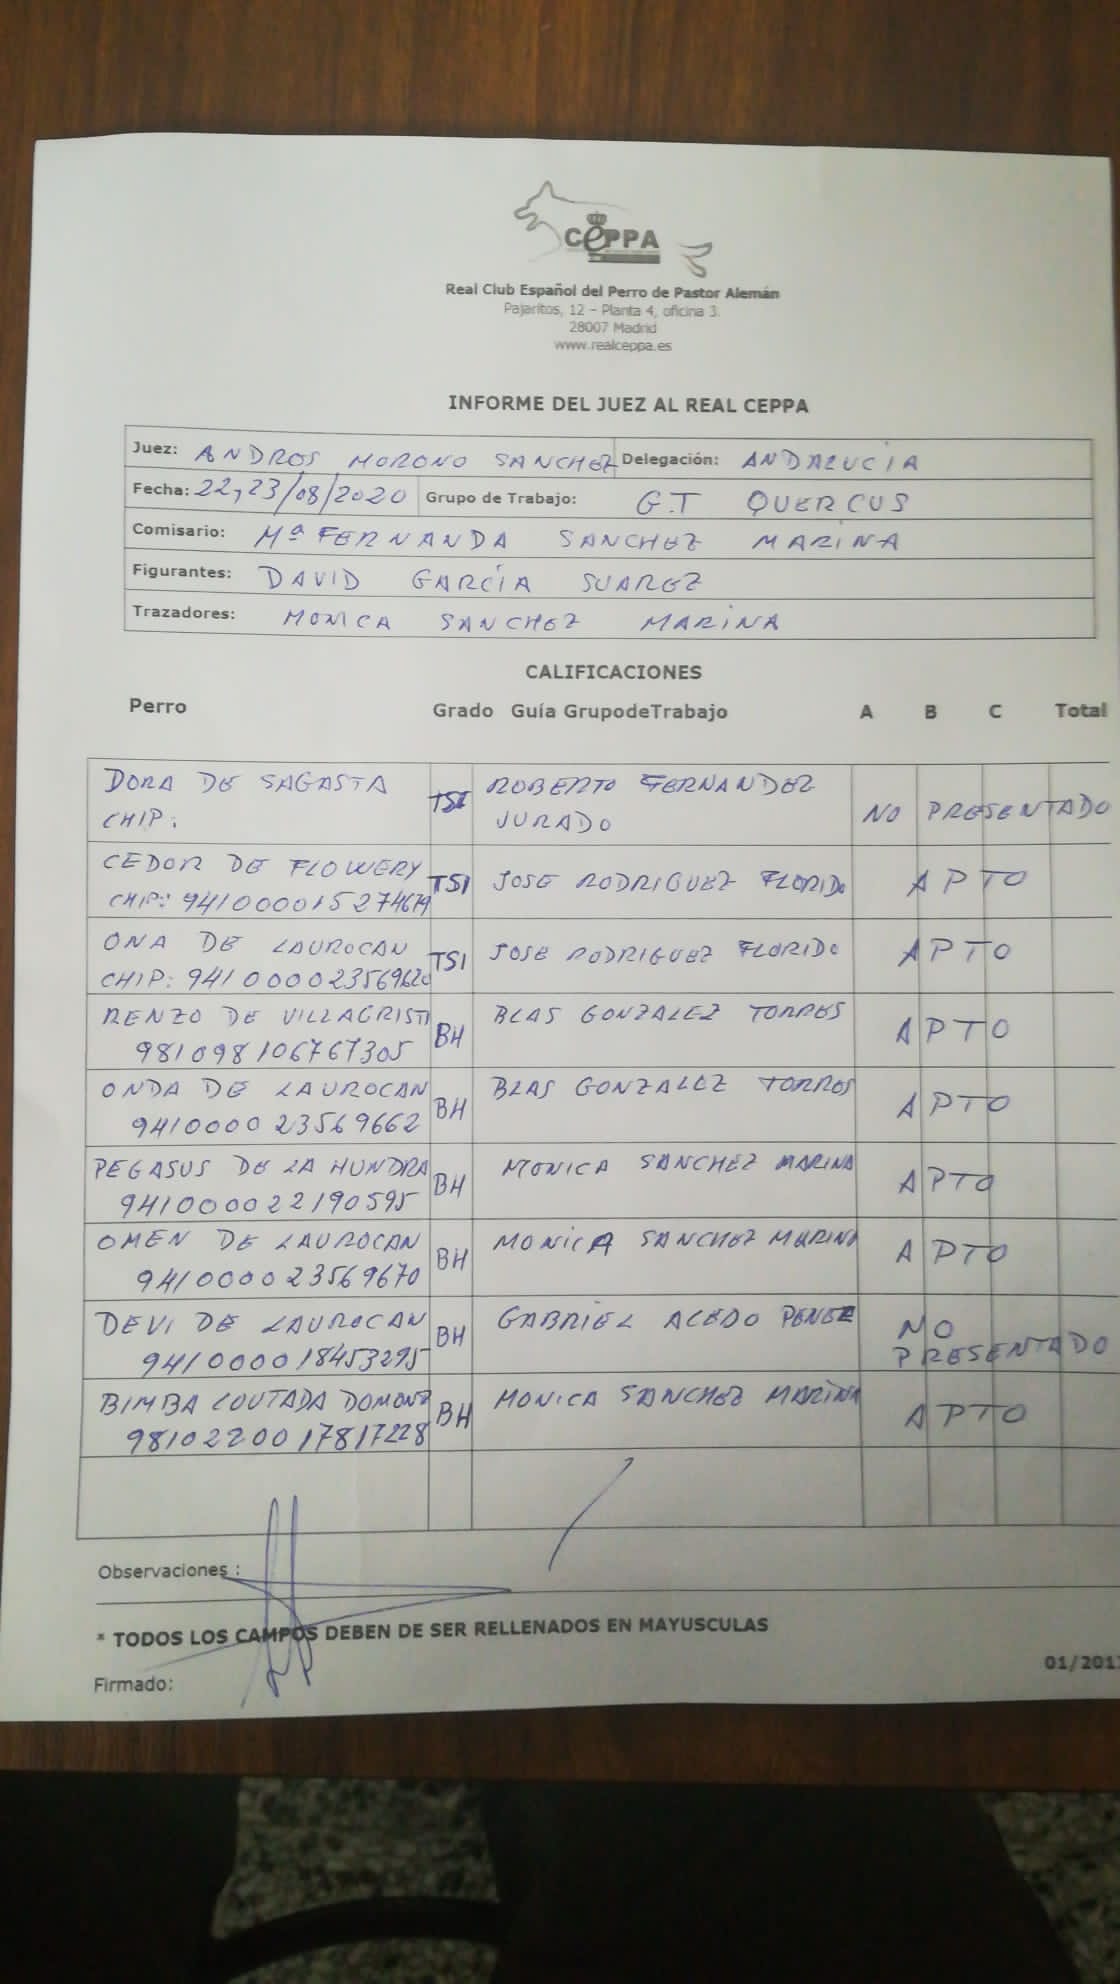 CEPPA
Real Club Español del Perro de Pastor Alemán
Pajaritos, 12 – Planta 4, oficina 3.
28007 Madrid
www.realceppa.es
INFORME DEL JUEZ AL REAL CEPPA
Juez: ANDROS MORONO SANCHEZ Delegación: ANDALUCÍA
Fecha: 22,23/08/2020 Grupo de Trabajo: G.T QUERCUS
Comisario: Mª FERNANDA SANCHEZ MARINA
Figurantes: DAVID GARCÍA SUAREZ
Trazadores: MONICA SANCHEZ MARINA
CALIFICACIONES
Perro Grado Guía GrupodeTrabajo A B C Total
DORA DE SAGASTA TSI ROBERTO FERNANDEZ
CHIP: JURADO NO PRESENTADO
CEDOR DE FLOWERY TSI JOSE RODRIGUEZ FLORIDO APTO
CHIP: 941000015274679
ONA DE LAUROCAN TSI JOSE RODRIGUEZ FLORIDO APTO
CHIP: 941000023569620
RENZO DE VILLACRISTI BH BLAS GONZALEZ TORRES APTO
981098106767305
ONDA DE LAUROCAN BH BLAS GONZALEZ TORROS APTO
941000023569662
PEGASUS DE LA HUNDRA BH MONICA SANCHEZ MARINA APTO
941000022190595
OMEN DE LAUROCAN BH MONICA SANCHEZ MARINA APTO
941000023569670
DEVI DE LAUROCAN BH GABRIEL ACEDO PENEZ NO
941000018453295 PRESENTADO
BIMBA LOUTADA DOMONZ BH MONICA SANCHEZ MARINA APTO
9810220017817228
Observaciones :
* TODOS LOS CAMPOS DEBEN DE SER RELLENADOS EN MAYUSCULAS
01/201
Firmado: